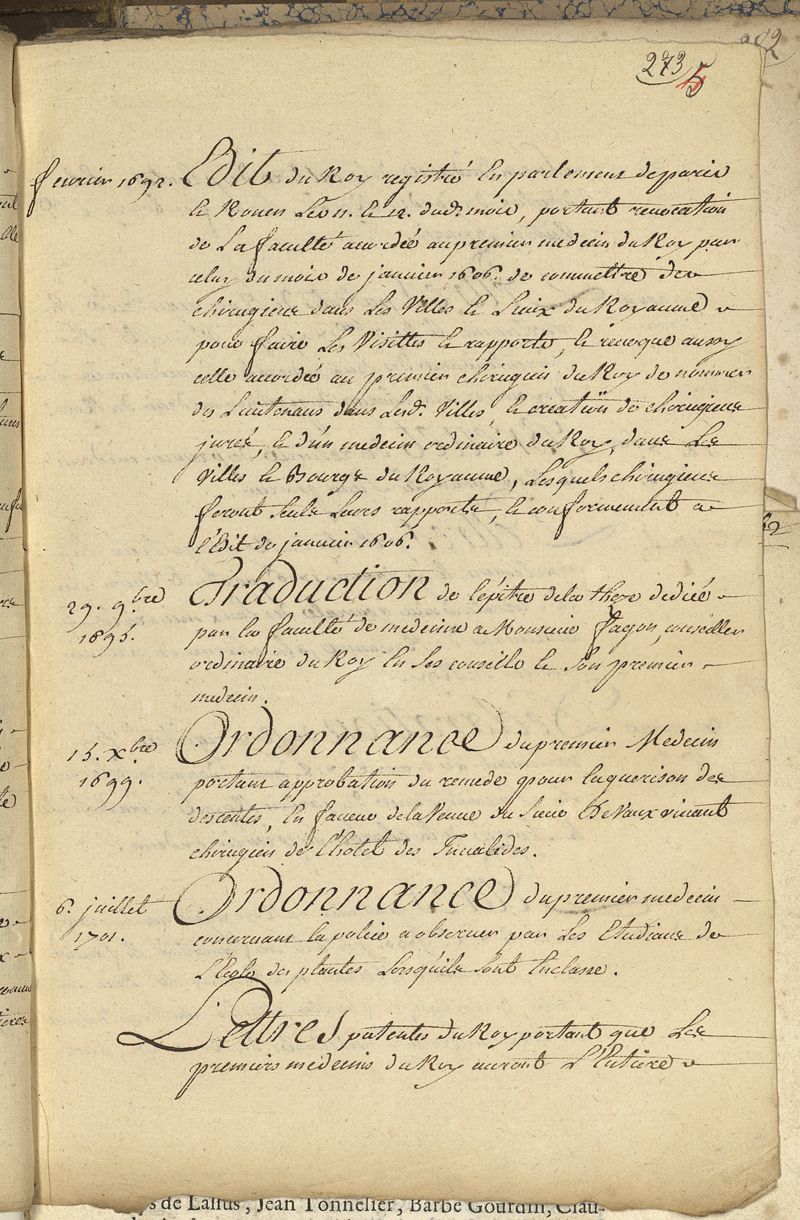 273 5
fevrier 1692. Edit du Roy registré En parlement de paris
le Rouen Leon. le 12. dud. mois, portant revocation
de La faculté accordée au premier medecin du Roy par
celuy du mois de janvier 1606. de commettre des
chirugiens dans Les Villes le Lieux du Royaume
pour faire Les Visittes le rapports, le revoque aussy
celle accordée au premier chirugien du Roy de nommer
des Lieutenans dans Lesd. Villes, le creation de chirugiens
jurés, le d'un medecin ordinaire du Roy, dans Les
Villes le Bourgs du Royaume, Lesquels chirugiens
feront seuls Leurs rapports, le conformement a
l'Edit de janvier 1606.
29. 9bre Traduction de l'épitre de la these dediée
1695. par la faculté de medecine a Monsieur fagon, conseiller
ordinaire du Roy En ses conseils le son premier
medecin.
15. Xbre Ordonnance du premier Medecin
1699. portant approbation du remede pour la guerison des
descentes, En faveur de la Veuve du Sieur Devaux vivant
chirugien de l'hotel des Invalides.
6. juillet Ordonnance du premier medecin
1701. concernant la police a observer par Les Etudians de
L'Ecole des plantes Lorsquils sont En classe.
Lettres patentes du Roy portant que Les
premiers medecins du Roy auront L'Entiere
de Lallus, Jean Tonnelier, Barbe Gourdin, Clau-